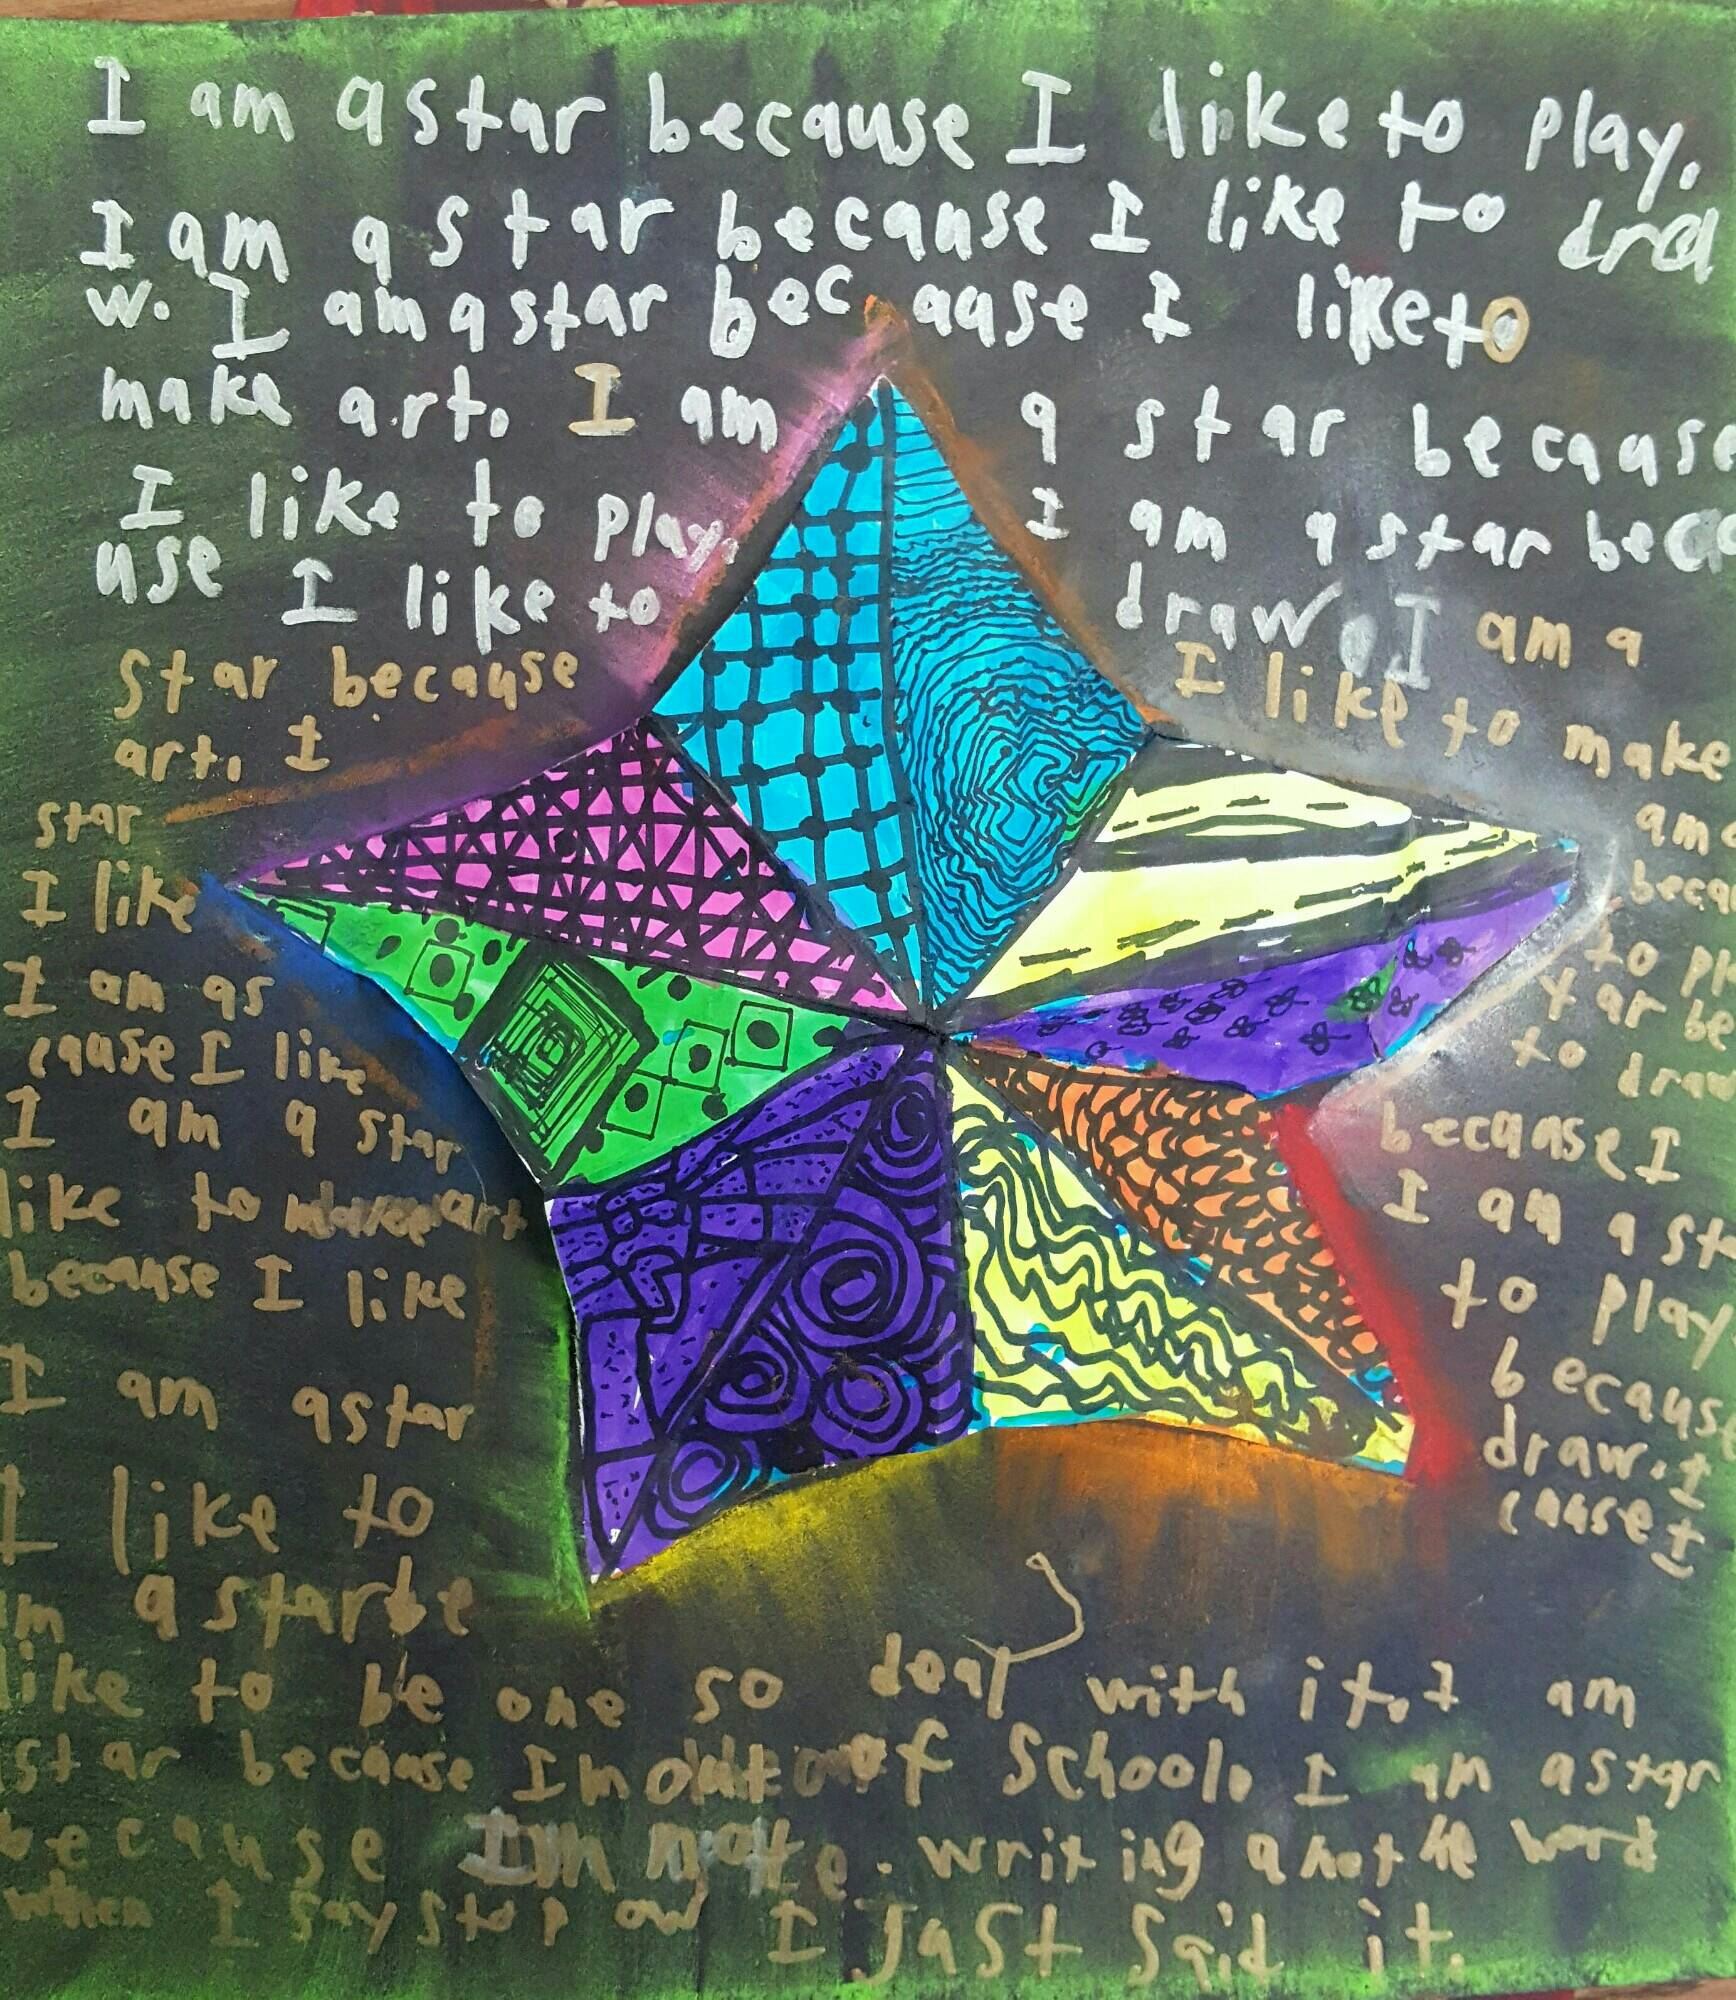 I am a star because I like to play.
I am a star because I like to dra
w. I am a star bec ause I like to
make art. I am a star because
I like to play. I am a star bec
use I like to draw. I am a
star because I like to make
art. I am
star beca
I like to pl
I am as tar be
cause I like to draw
I am a star because I
like to art I am a st
because I like to play
I am a star because
I like to draw. I
m a star be cause I
like to be one so deal with it. I am
star because Im out of school. I am a star
because Im not writing anothe word
when I say stop ow I just said it.